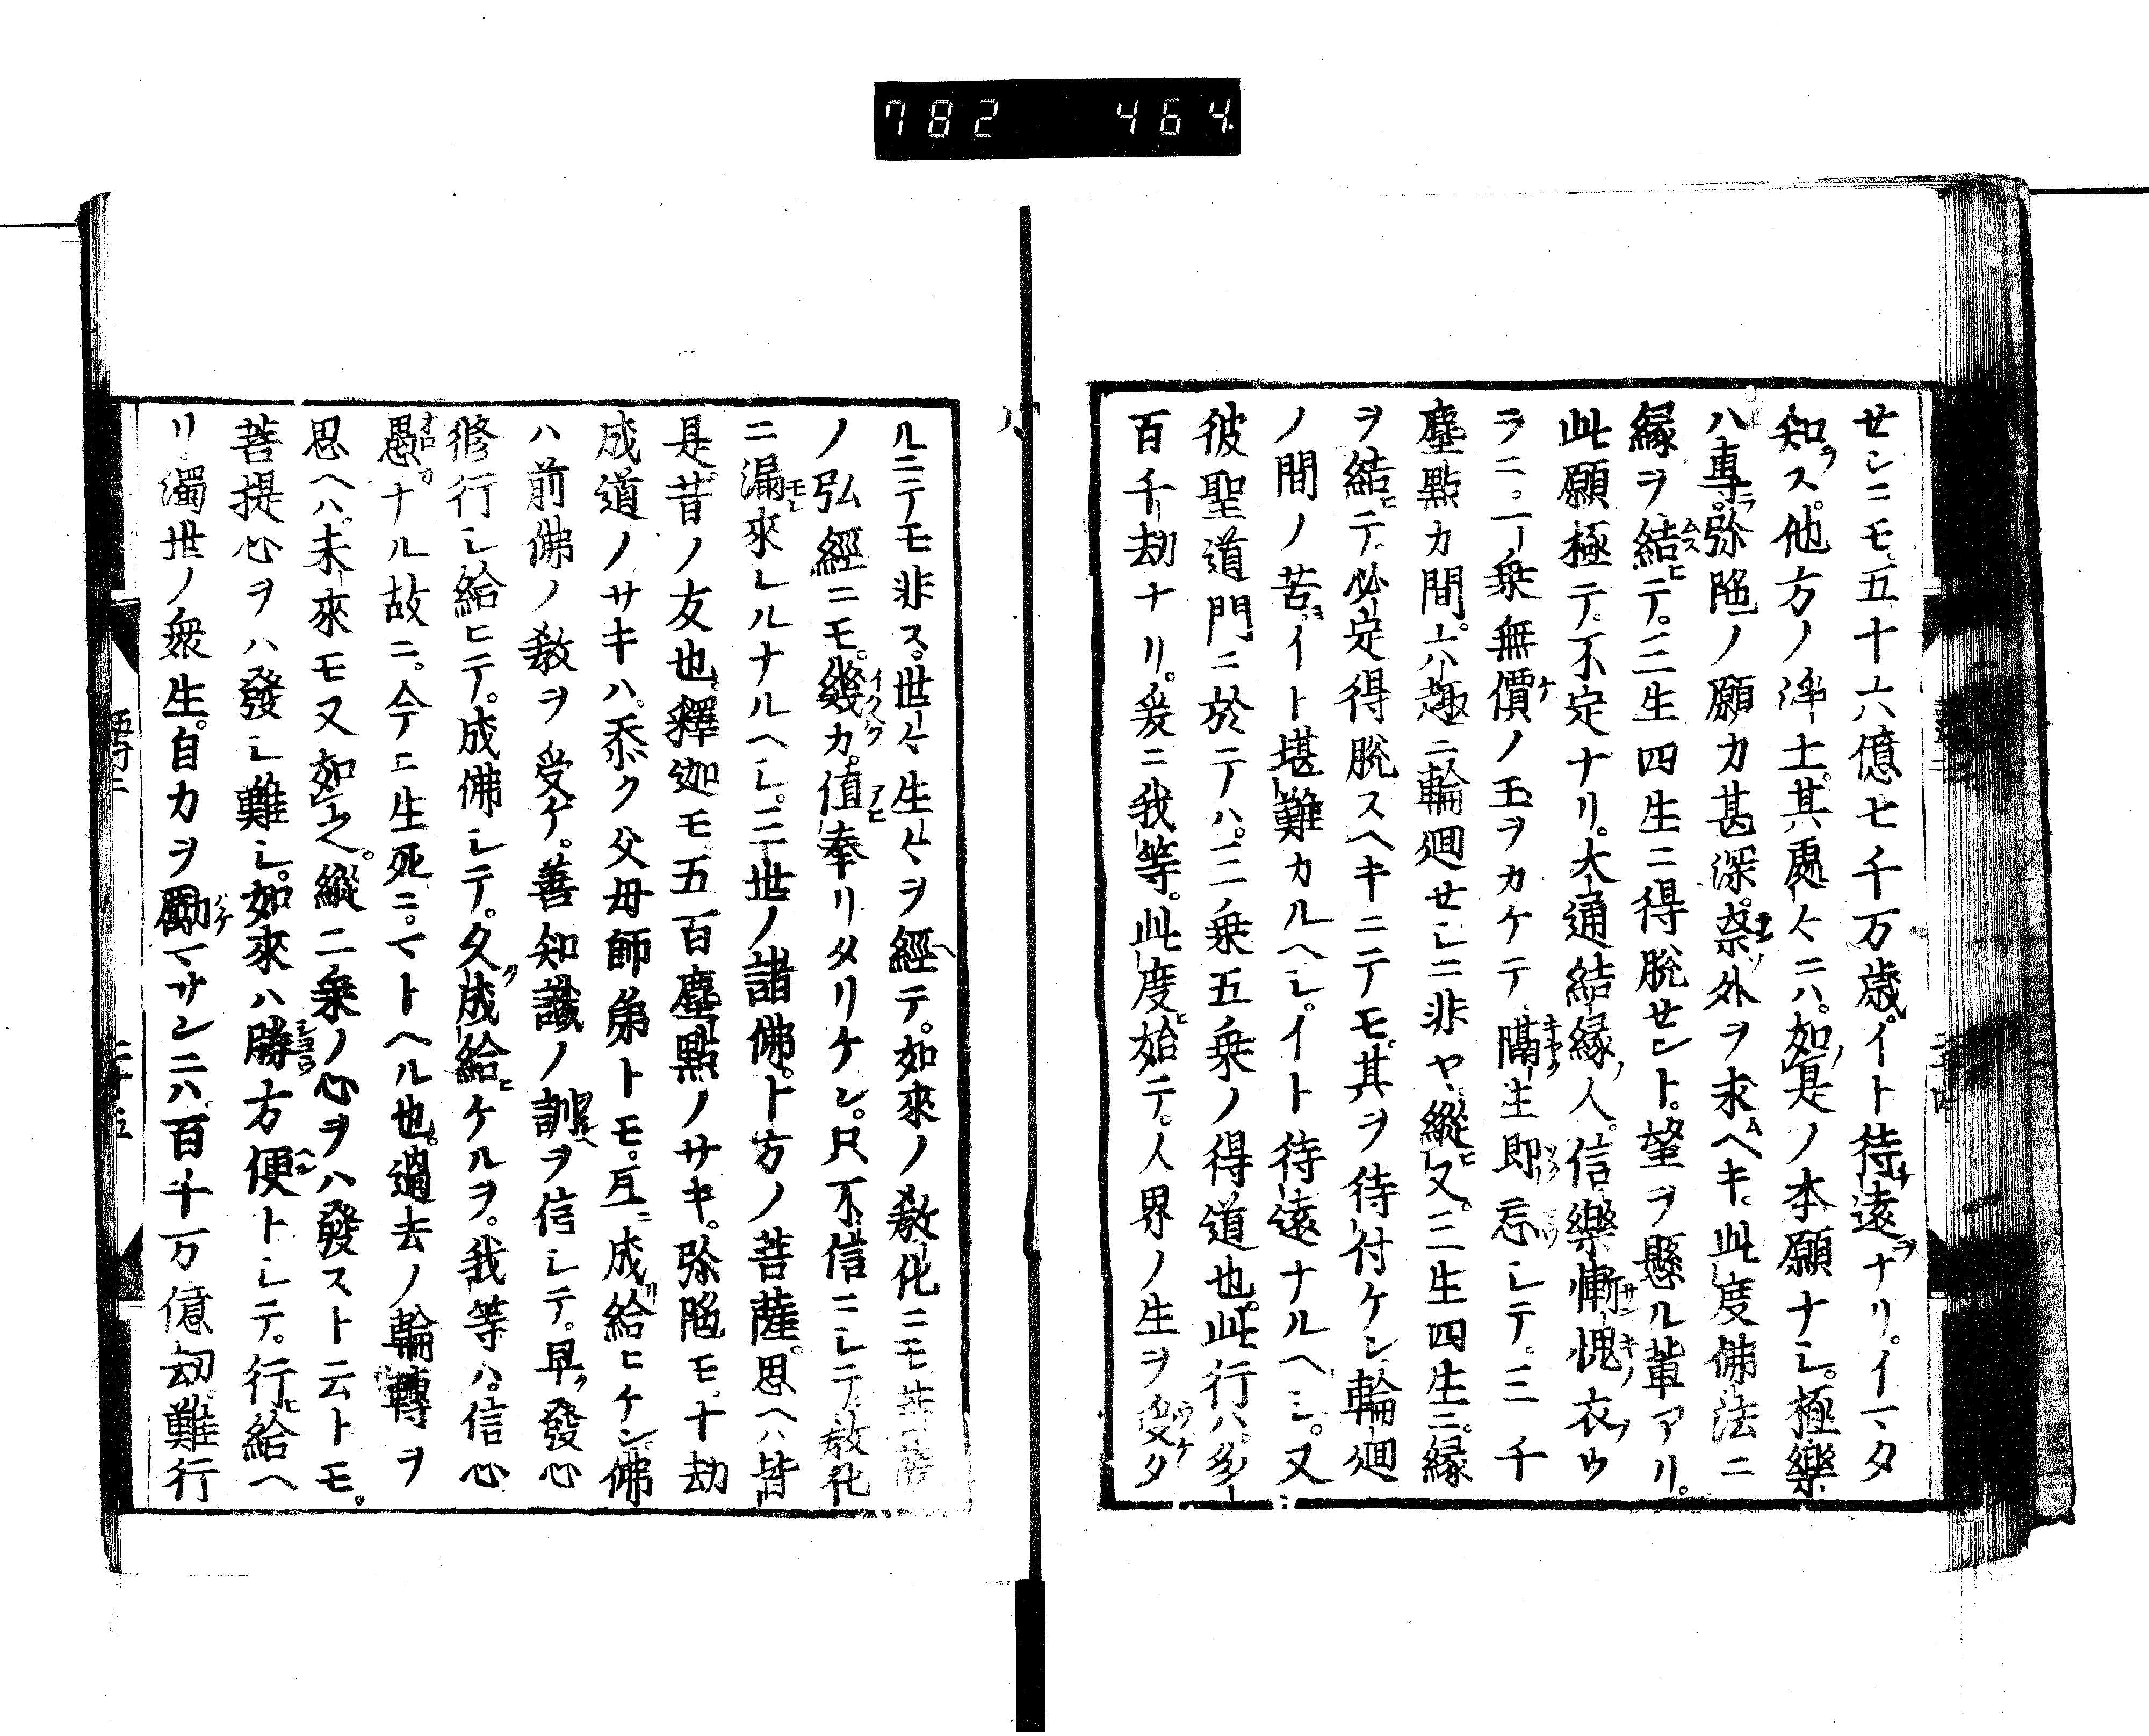 782 464
センニモ。五十六億七千万歳。イト待遠ナリ。イマタ
知ス。他方ノ浄土。其處々ニハ。如是ノ本願ナシ。極樂
ハ專弥陀ノ願力甚深。奈外ヲ求ヘキ。此度佛法ニ
縁ヲ結ヒテ。三生四生ニ得脱セント。望ヲ懸ル輩アリ。
此願極テ不定ナリ。大通結縁ノ人。信樂慚愧ノ衣ウ
ラニ。一乗無價ノ玉ヲカケテ。隔生即忘シテ。三千
塵點カ間。六趣ニ輪廻セシニ非ヤ。縦ヒ又。三生四生ニ。縁
ヲ結ヒテ。必定得脱スヘキニテモ。其ヲ待付ケン輪廻
ノ間ノ苦。イト堪難カルヘシ。イト待遠ナルヘシ。又
彼聖道門ニ於テハ。三乗五乗ノ得道也。此行ハ。多
百千劫ナリ。爰ニ我等。此度始テ。人界ノ生ヲ受タ
ルニテモ非ス。世々生々ヲ經テ。如來ノ教化ニモ菩薩
ノ弘經ニモ。幾カ。値奉リタリケン。只不信ニシテ。教化
ニ漏來レルナルヘシ。三世ノ諸佛。十方ノ菩薩。思ヘハ皆
是昔ノ友也。釋迦モ五百塵點ノサキ。弥陀モ十劫
成道ノサキハ。忝ク父母師弟トモ。互ニ成給ヒケン。佛
ハ前佛ノ教ヲ受ケ。善知識ノ訓ヲ信シテ。早發心
修行シ給ヒテ。成佛シテ。久成給ヒケルヲ。我等ハ。信心
愚ナル故ニ。今ニ生死ニ。マトヘル也。過去ノ輪轉ヲ
思ヘハ。未來モ又如之。縦二乗ノ心ヲハ發スト云トモ。
菩提心ヲハ發シ難シ。如來ハ勝方便トシテ。行給ヘ
リ。濁世ノ衆生。自力ヲ勵マサンニハ。百千万億劫。難行